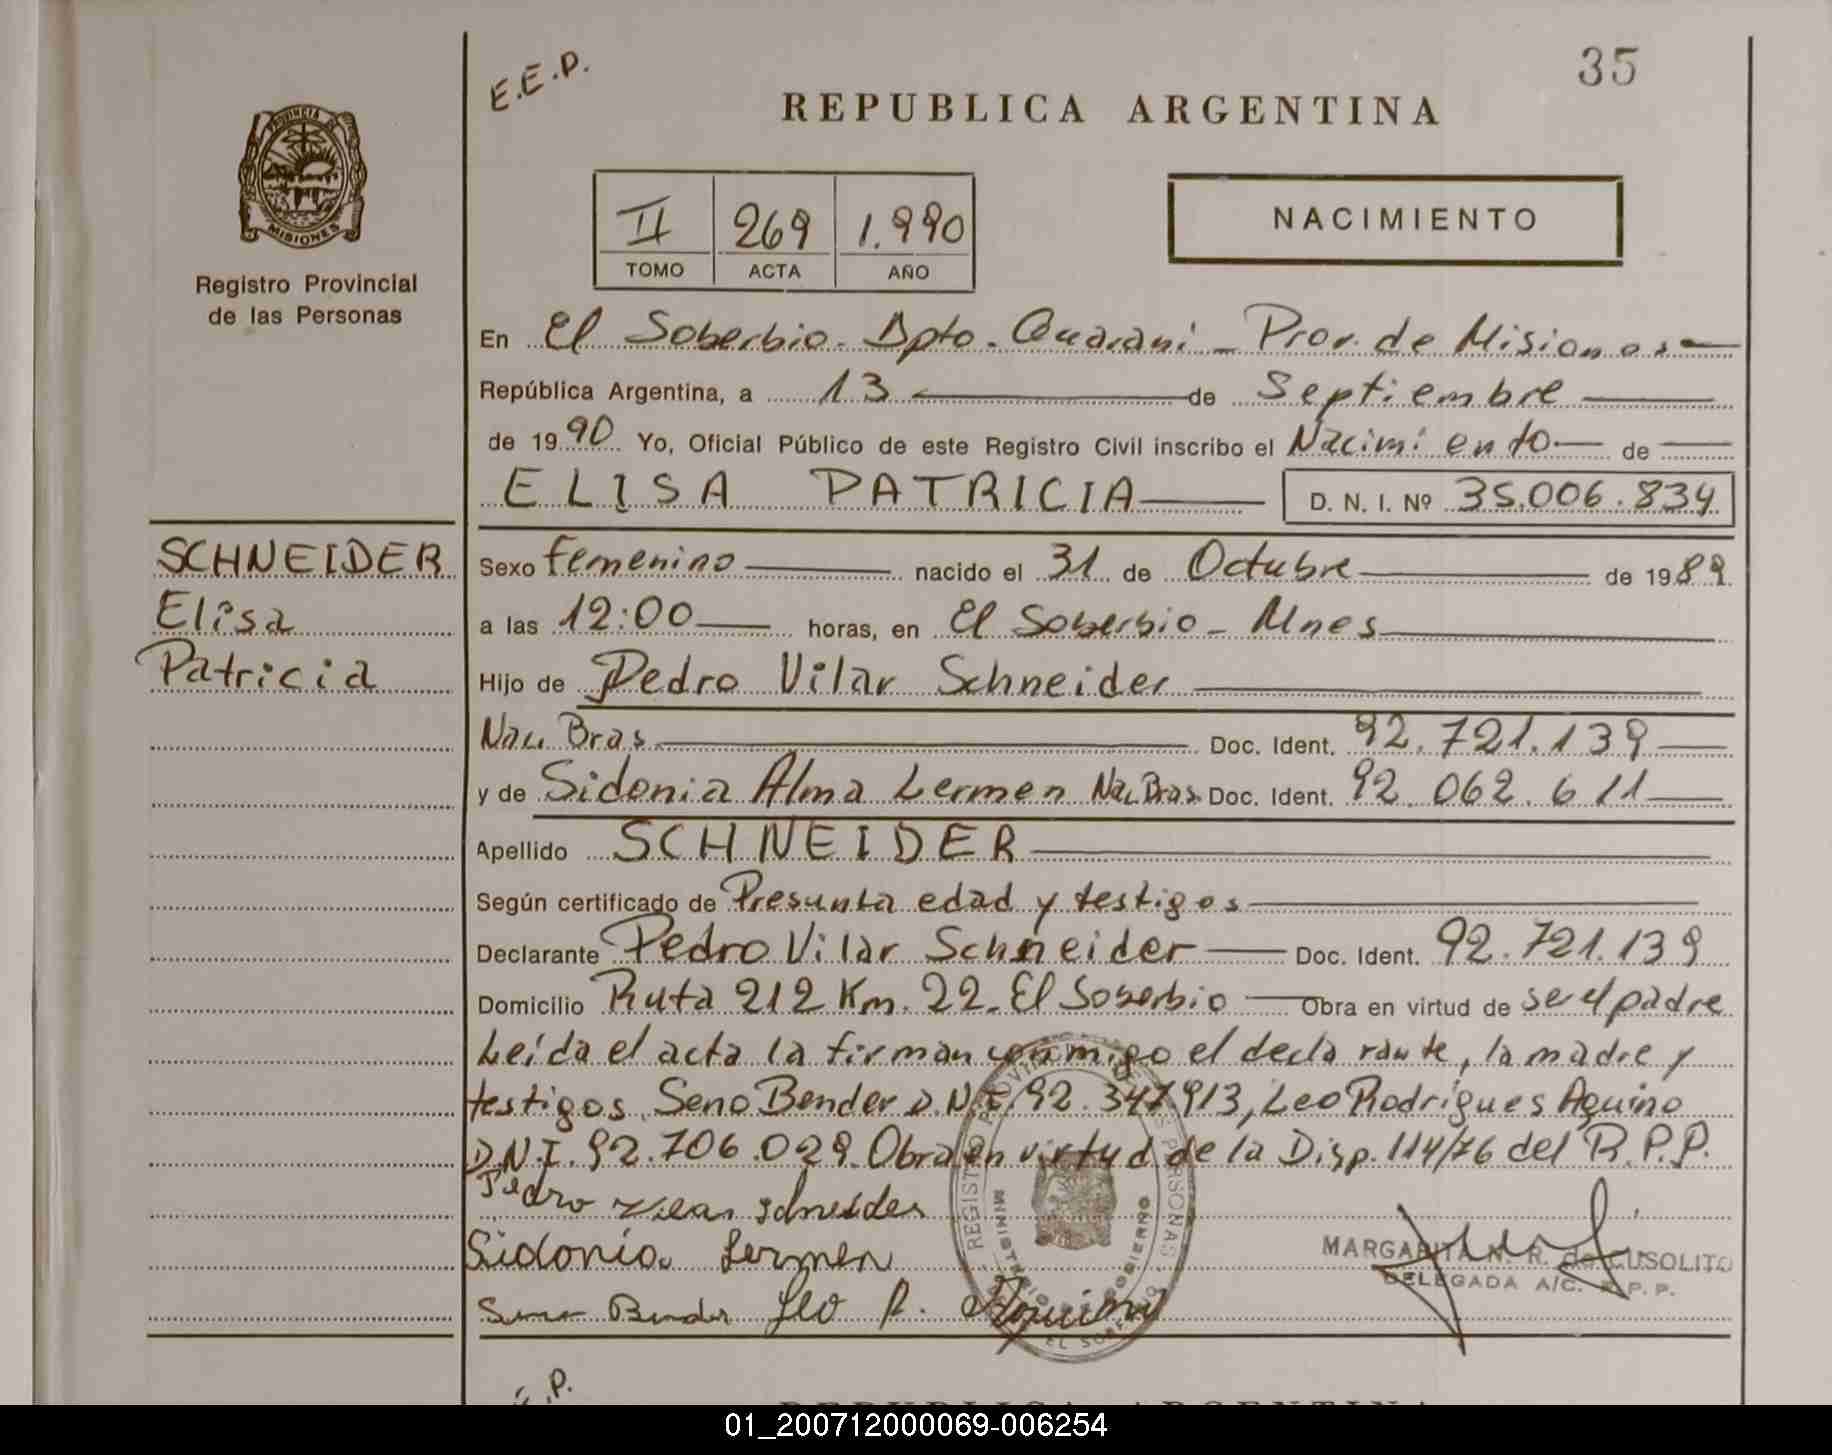 35
E.E.P.
REPUBLICA ARGENTINA
PROVINCIA DE
MISIONES
Registro Provincial
de las Personas
II 269 1.990
TOMO ACTA AÑO
NACIMIENTO
En El Soberbio - Dpto. Guaraní - Prov. de Misiones
República Argentina, a 13 de Septiembre
de 1990 Yo, Oficial Público de este Registro Civil inscribo el Nacimiento de
ELISA PATRICIA D. N. I. Nº 35.006.834
SCHNEIDER
Elisa
Patricia
Sexo femenino nacido el 31 de Octubre de 1989
a las 12:00 horas, en El Soberbio - Mnes
Hijo de Pedro Vilar Schneider
Nac. Bras. Doc. Ident. 92.721.139
y de Sidonia Alma Lermen Nac. Bras. Doc. Ident. 92.062.611
Apellido SCHNEIDER
Según certificado de Presunta edad y testigos
Declarante Pedro Vilar Schneider Doc. Ident. 92.721.139
Domicilio Ruta 212 Km. 22 - El Soberbio Obra en virtud de se el padre
Leída el acta la firman conmigo el declarante, la madre y
testigos Seno Bender D.N.I. 92.347.913, Leo Rodrigues Aquino
D.N.I. 92.706.029. Obra en virtud de la Disp. 114/76 del R.P.P.
Pedro Vilar Schneider
Sidonia Lermen
Seno Bender Leo R. Aquino
MARGARITA N. R. de CUSOLITO
DELEGADA A/C. R.P.P.
E.P.
REPUBLICA ARGENTINA
01_200712000069-006254